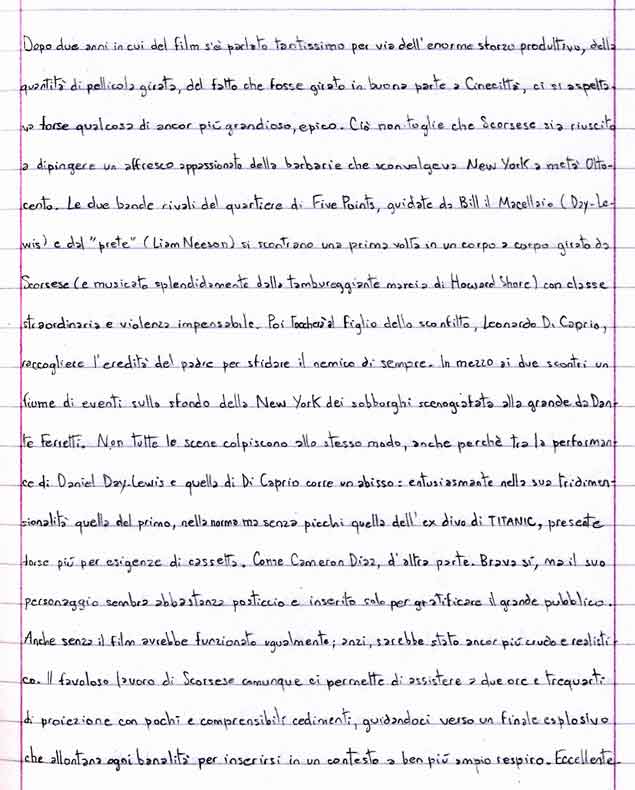 Dopo due anni in cui del film s'è parlato tantissimo per via dell'enorme sforzo produttivo, della
quantità di pellicola girata, del fatto che fosse girato in buona parte a Cinecittà, ci si aspetta-
va forse qualcosa di ancor più grandioso, epico. Ciò non toglie che Scorsese sia riuscito
a dipingere un affresco appassionato della barbarie che sconvolgeva New York a metà Otto-
cento. Le due bande rivali del quartiere di Five Points, guidate da Bill il Macellaio (Day-Le-
wis) e dal "prete" (Liam Neeson) si scontrano una prima volta in un corpo a corpo girato da
Scorsese (e musicato splendidamente dalla tambureggiante marcia di Howard Shore) con classe
straordinaria e violenza impensabile. Poi toccherà al figlio dello sconfitto, Leonardo Di Caprio,
raccogliere l'eredità del padre per sfidare il nemico di sempre. In mezzo ai due scontri un
fiume di eventi sullo sfondo della New York dei sobborghi scenografata alla grande da Dan-
te Ferretti. Non tutte le scene colpiscono allo stesso modo, anche perchè tra la performan-
ce di Daniel Day-Lewis e quella di Di Caprio corre un abisso: entusiasmante nella sua tridimen-
sionalità quella del primo, nella norma ma senza picchi quella dell'ex divo di TITANIC, presente
forse più per esigenze di cassetta. Come Cameron Diaz, d'altra parte. Brava sì, ma il suo
personaggio sembra abbastanza posticcio e inserito solo per gratificare il grande pubblico.
Anche senza il film avrebbe funzionato ugualmente; anzi, sarebbe stato ancor più crudo e realisti-
co. Il favoloso lavoro di Scorsese comunque ci permette di assistere a due ore e trequarti
di proiezione con pochi e comprensibili cedimenti, guidandoci verso un finale esplosivo
che allontana ogni banalità per inserirsi in un contesto a ben più ampio respiro. Eccellente.